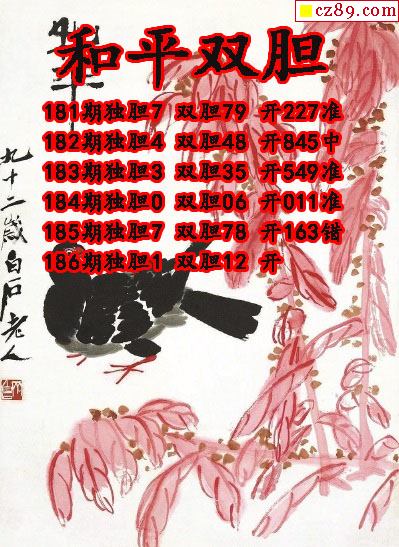 cz89.com
和平双胆
181期独胆7 双胆79 开227准
182期独胆4 双胆48 开845中
183期独胆3 双胆35 开549准
184期独胆0 双胆06 开011准
185期独胆7 双胆78 开163错
186期独胆1 双胆12 开
九十二岁白石老人